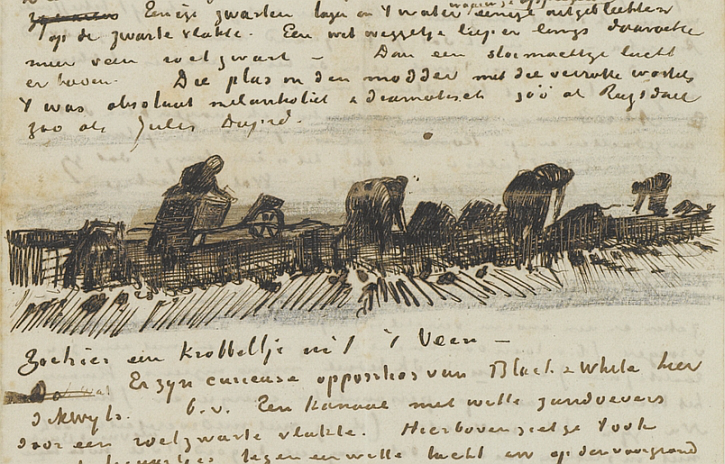 Eenige zwarten lagen in 't water eenige uitgebleekten
op de zwarte vlakte. Een wit weggetje liep er langs daarachter
meer veen roetzwart – Dan een stormachtige lucht
er boven. Die plas in den modder met die verrotte wortels
't was absoluut melankoliek & dramatisch zóó als Ruysdael
zoo als Jules Dupré.
Ziehier een krabbeltje uit 't Veen –
Er zyn curieuse opposities van Black & White hier
dikwyls. b.v. Een kanaal met witte zandoevers
door een roetzwarte vlakte. Hierboven ziet ge 't ook
figuurtjes tegen een witte lucht en op den voorgrond